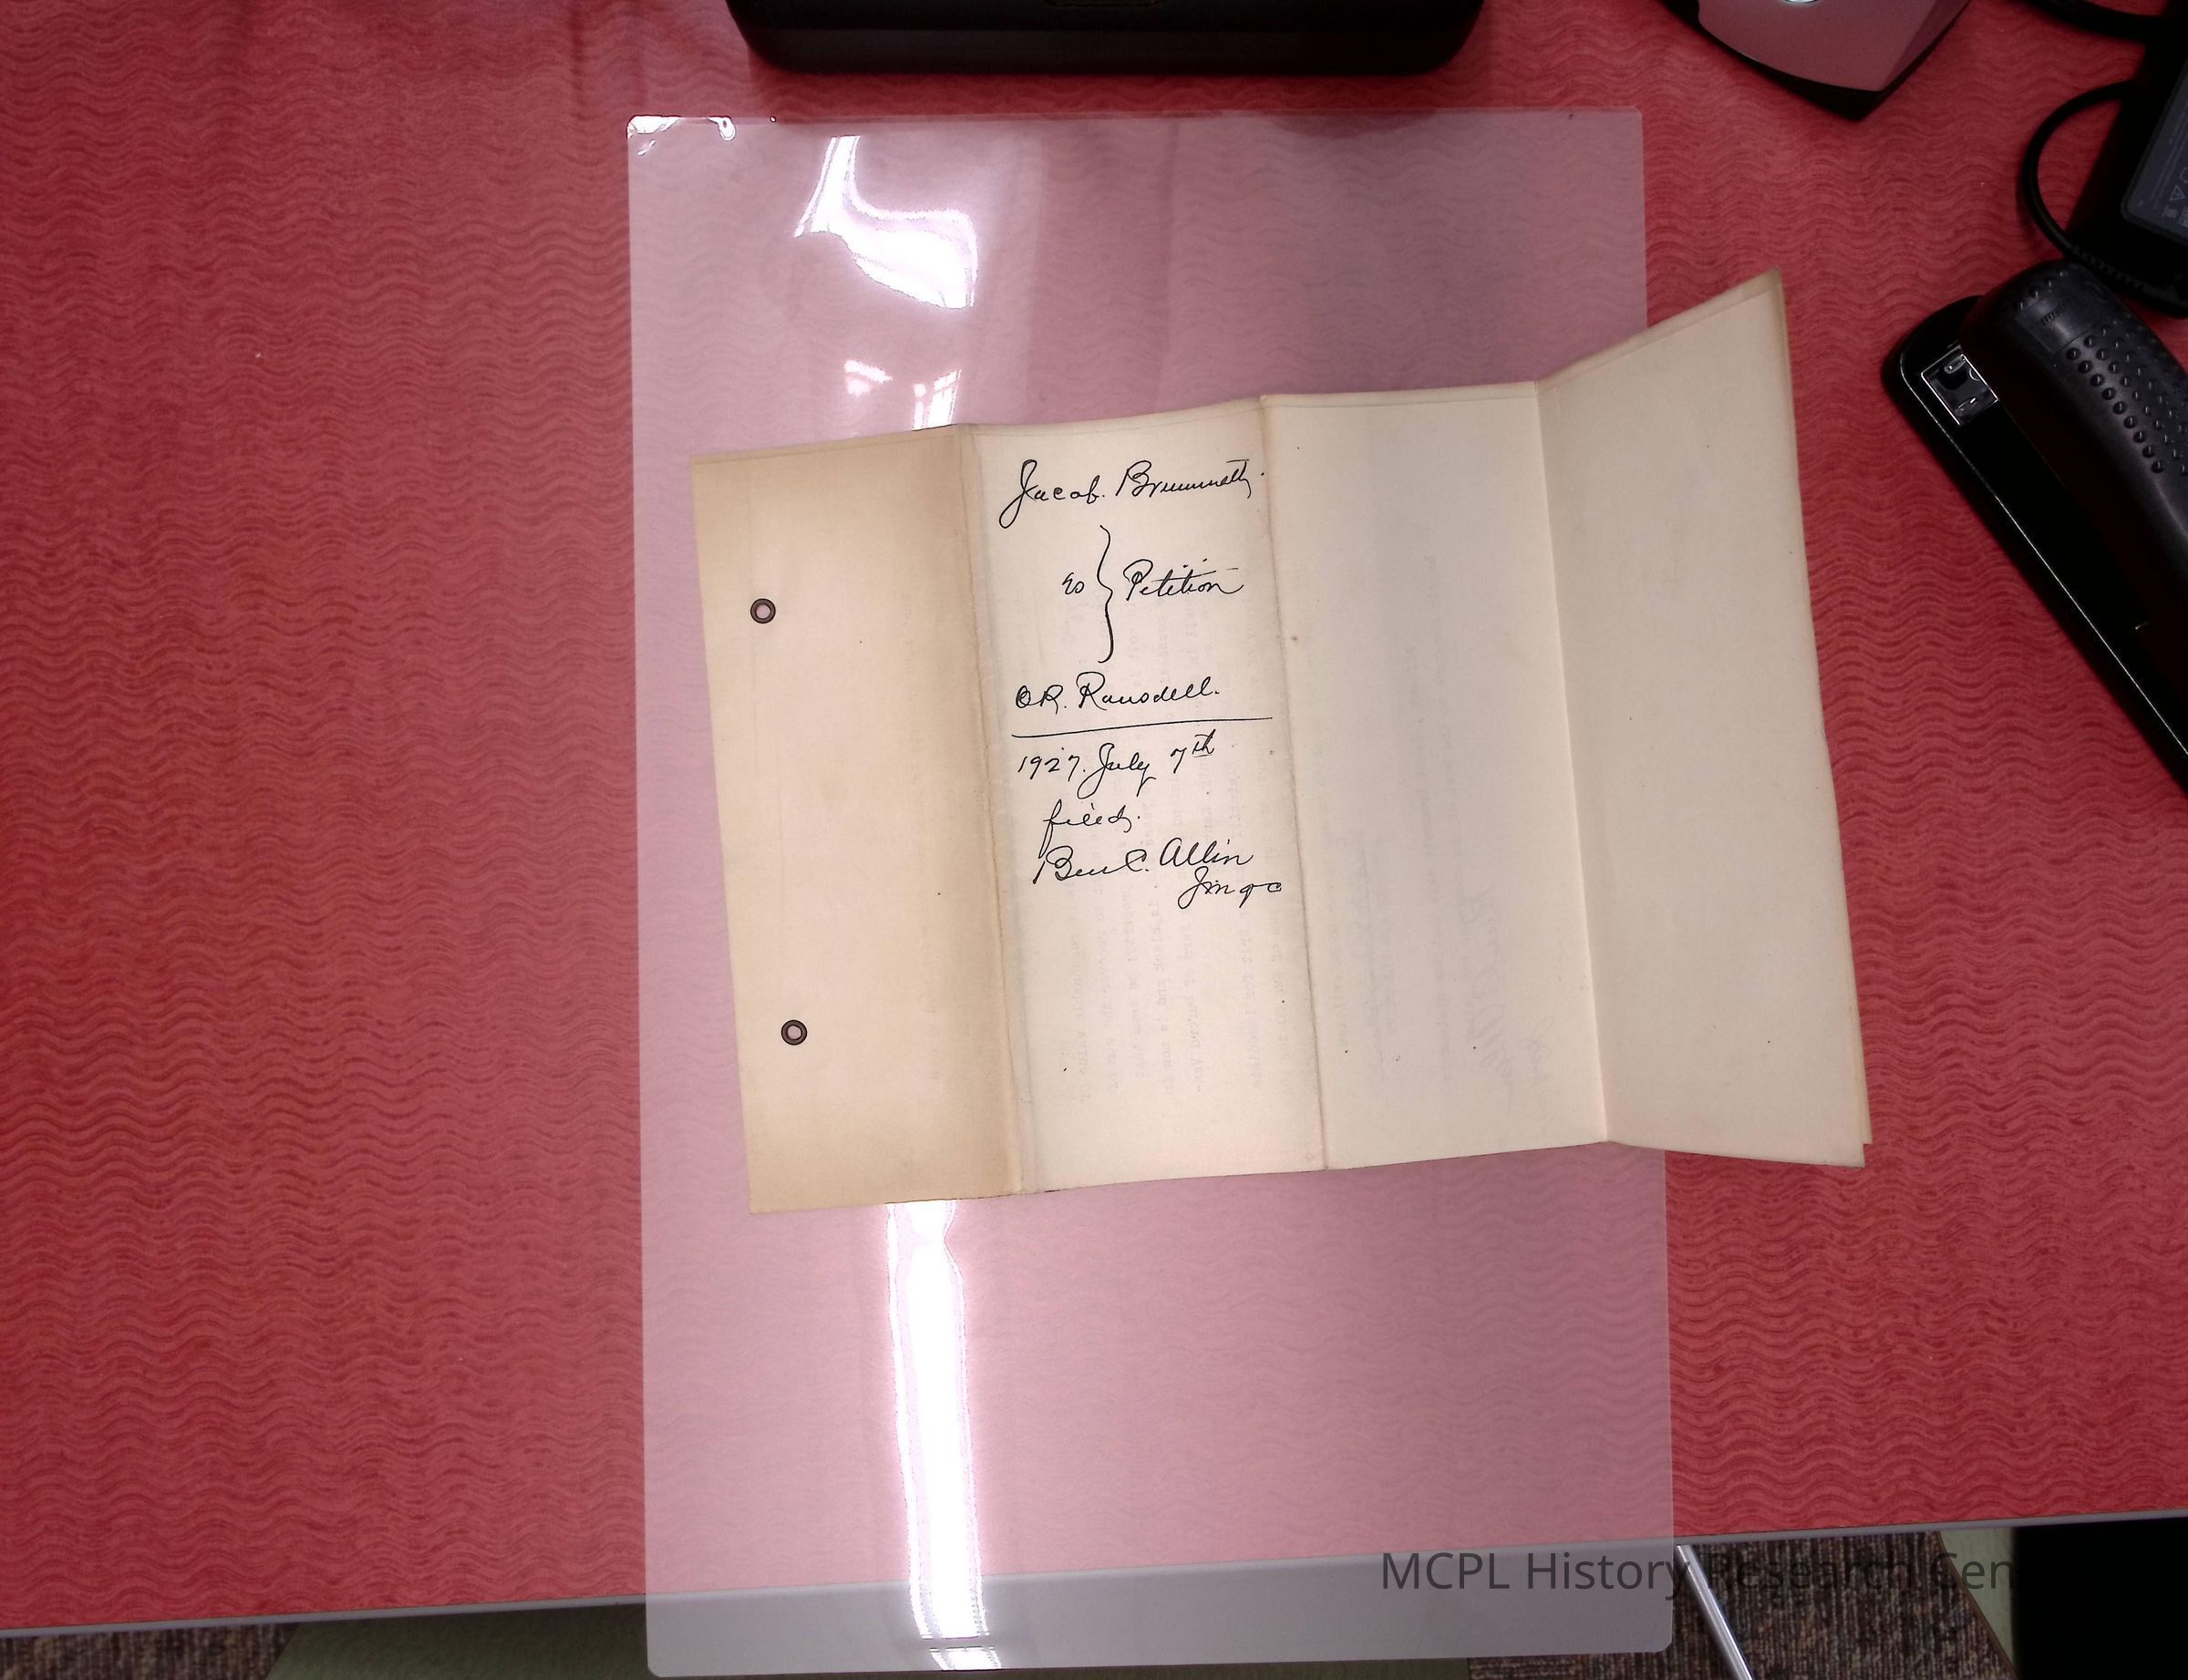 Jacob. Brummett.
vs } Petition
O.R. Ransdell.
1927. July 7th
filed.
Ben C. Allin
MCPL History Research Cen